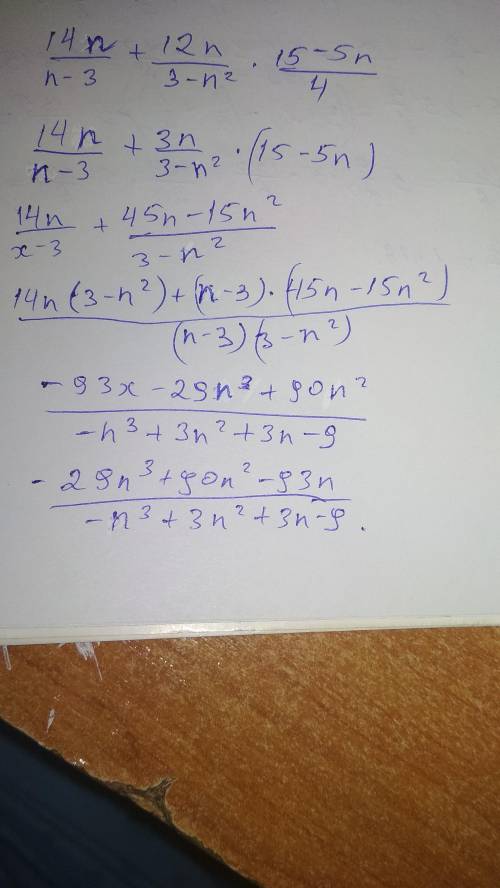 14n/(n-3) + 12n/(3-n²) · (15-5n)/4
14n/(n-3) + 3n/(3-n²) · (15-5n)
14n/(x-3) + (45n-15n²)/(3-n²)
(14n(3-n²)+(n-3)·(45n-15n²))/((n-3)(3-n²))
(-93x-29n³+90n²)/(-n³+3n²+3n-9)
(-29n³+90n²-93n)/(-n³+3n²+3n-9).